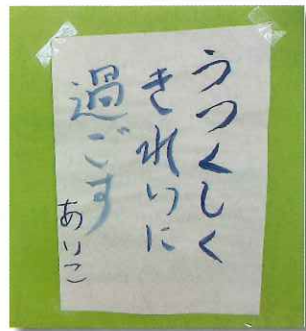 うつくしく
きれいに
過ごす
あいこ